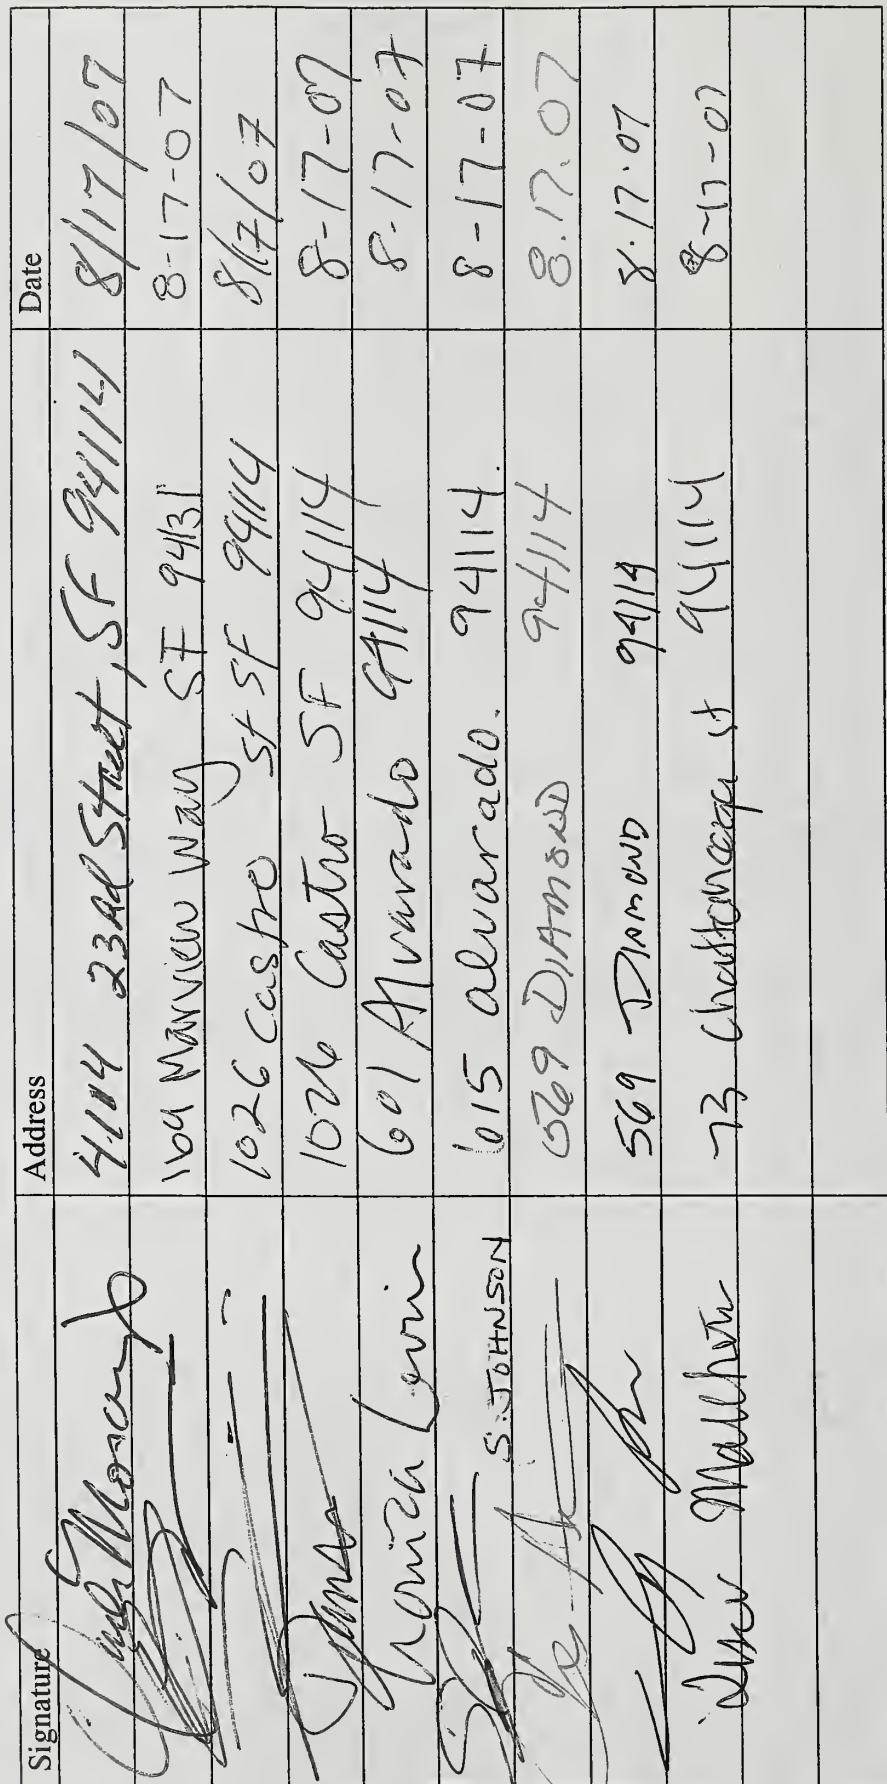 Signature Address Date
4104 23rd Street, SF 94114 8/17/07
169 Marview Way SF 94131 8-17-07
1026 Castro St SF 94114 8/17/07
1026 Castro SF 94114 8-17-07
Monica Levin 601 Alvarado 94114 8-17-07
S. JOHNSON 615 alvarado. 94114. 8-17-07
569 DIAMOND 94114 8.17.07
569 DIAMOND 94114 8.17.07
73 Chattanooga st 94114 8-17-07